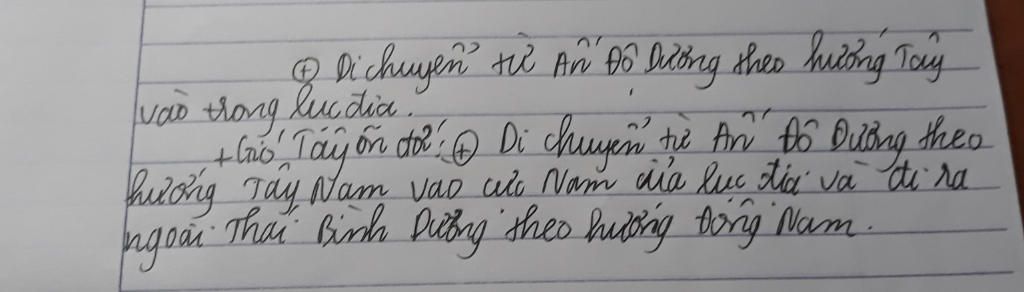 ⊕ Di chuyển từ Ấn Độ Dương theo hướng Tây
vào trong lục địa.
+ Gió Tây ôn đới: ⊕ Di chuyển từ Ấn Độ Dương theo
hướng Tây Nam vào cực Nam của lục địa và đi ra
ngoài Thái Bình Dương theo hướng Đông Nam.